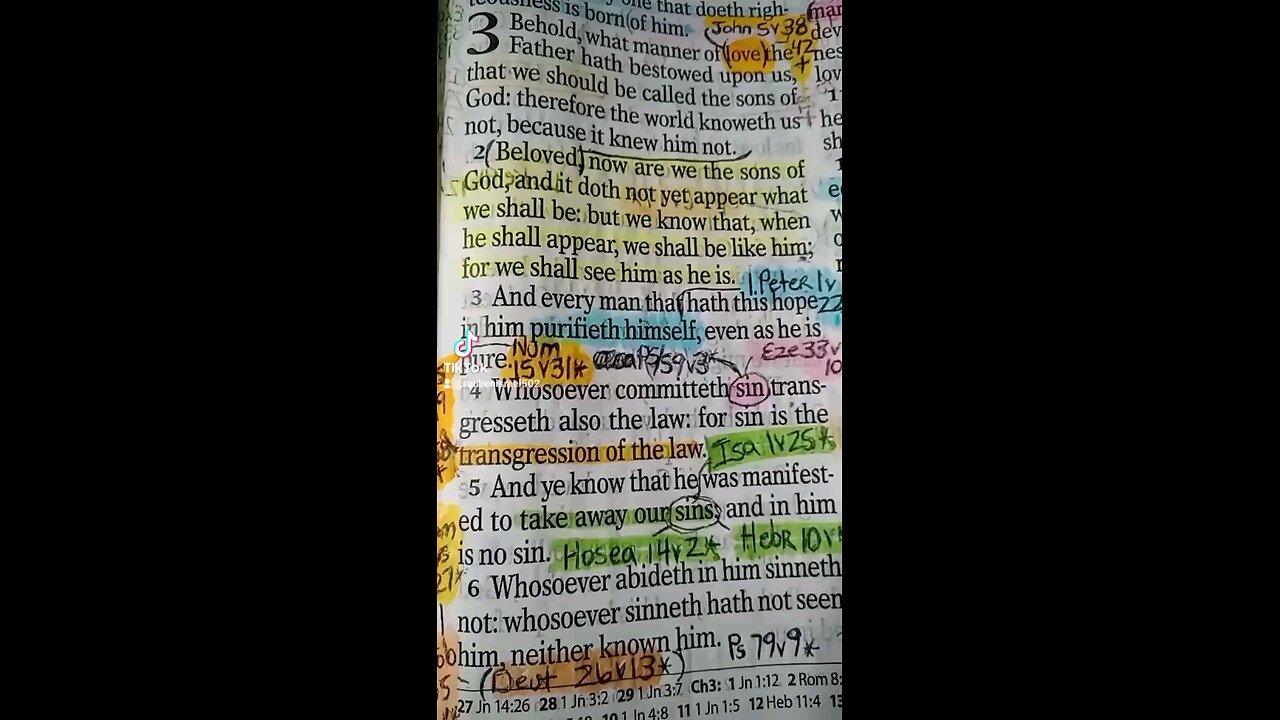 one that doeth righ-
teousness is born of him.
John 5v38
42
+
3 Behold, what manner of love the
Father hath bestowed upon us,
that we should be called the sons of
God: therefore the world knoweth us
not, because it knew him not.
2 (Beloved) now are we the sons of
God, and it doth not yet appear what
we shall be: but we know that, when
he shall appear, we shall be like him;
for we shall see him as he is.
1.Peter 1v
22
3 And every man that hath this hope
in him purifieth himself, even as he is
pure.
Num
15v31*
Ps 59v3*
Eze 33v
10
4 Whosoever committeth sin trans-
gresseth also the law: for sin is the
transgression of the law.
Isa 1v25*
5 And ye know that he was manifest-
ed to take away our sins; and in him
is no sin.
Hosea 14v2*
Hebr 10v
6 Whosoever abideth in him sinneth
not: whosoever sinneth hath not seen
him, neither known him.
Ps 79v9*
(Deut 26v13*)
27 Jn 14:26 28 1 Jn 3:2 29 1 Jn 3:7 Ch3: 1 Jn 1:12 2 Rom 8:
10 1 Jn 4:8 11 1 Jn 1:5 12 Heb 11:4 13
man
dev
nes
lov
he
sh
TikTok